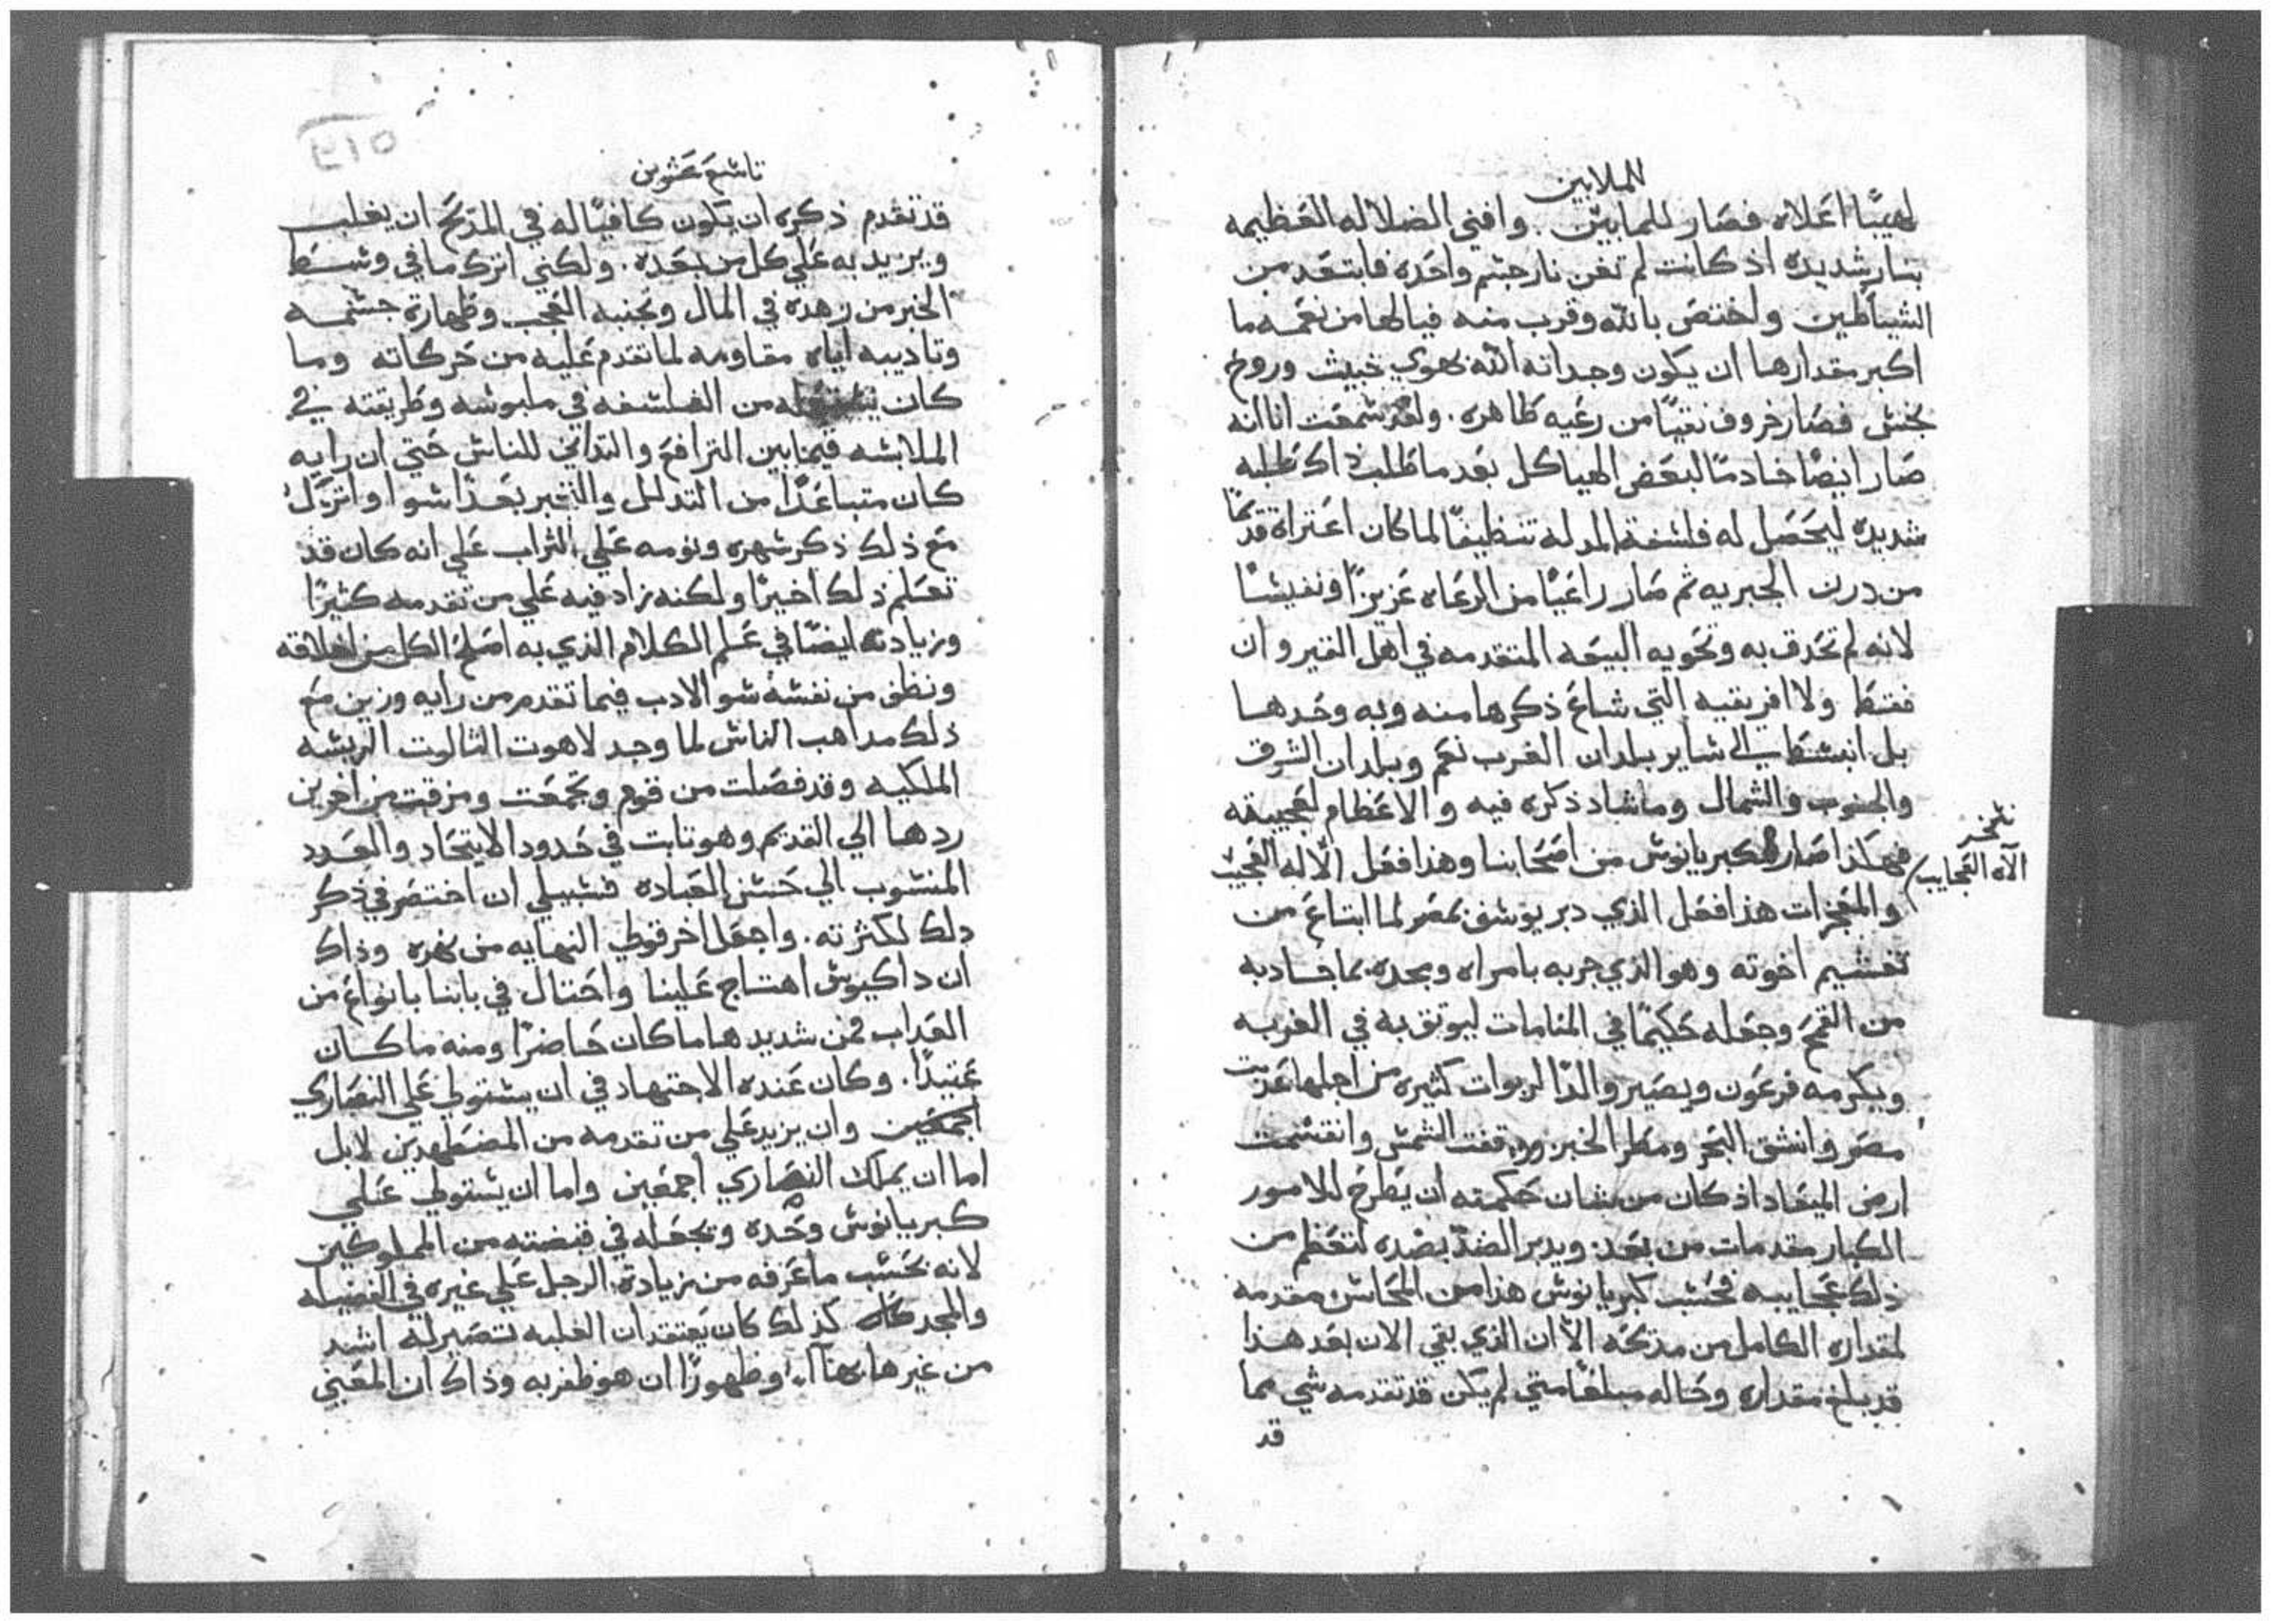 للملايين
لهيبًا اعلاه فصار للمابين. وافني الضلاله العظيمه
بنار شديده اذ كانت لم تغن نار جسم واحده فابتعد من
الشياطين واختص بالله وقرب منه فيالها من نعمه ما
اكبر مقدارها ان يكون وجداته الله بهوي خبيث وروح
نجس فصار خروف نقيًا من رعيه طاهره. ولقد سمعت انا انه
صار ايضًا خادمًا لبعض الهياكل بعد ما طلب ذاك طلبه
شديده ليحصل له فلسفة المدله تنظيفًا لما كان اعتراه قدمًا
من درن الجبريه ثم صار راعيًا من الرعاه عزيزًا ونفيسًا
لانه لم تحدق به وتحويه البيعه المتقدمه في اهل القيروان
فقط ولا افريقيه التي شاع ذكرها منه وبه وحدها
بل انبسط الي ساير بلدان الغرب نعم وبلدان الشرق
والجنوب والشمال وما ساد ذكره فيه والاعظام لعجيبته
فهكذا صار كبريانوس من اصحابنا وهذا فعل الاله العجيب
نسخه
الاه العجايب
والمعجزات هذا فعل الذي دبر يوسف بمصر لما ابتاع من
تغشيم اخوته وهو الذي جربه بامراه ومجده بما جاد به
من القمح وجعله حكيمًا في المنامات ليوثق به في الغربه
ويكرمه فرعون ويصير والدًا لربوات كثيره من اجلها عذبت
مصر وانشق البحر ومطر الخبز ووقفت الشمس وانقسمت
ارض الميعاد اذ كان من شان حكمته ان يطرح للامور
الكبار مقدمات من بعد ويدبر الضد بضده لتعظم من
ذلك عجايبه فحسب كبريانوس هذا من المحاسن مقدمه
لمقداره الكامل من مدحه الا ان الذي بقي الان بعد هذا
قد بلغ مقداره وحاله مبلغًا متي لم يكن قد تقدمه شي مما
قد
٢١٥
تاسع عشرين
قد تقدم ذكره ان يكون كافيًا له في المدح ان يغلب
ويزيد به علي كل من بعده. ولكني اترك ما في وسط
الخبر من زهده في المال وتجنبه العجب وطهارة جسمه
وتاديبه اياه مقاومه لما تقدم عليه من حركاته وما
كان من الفلسفه في ملبوسه وطريقته في
الملابسه فيما بين الترافع والتداني للناس حتي ان رايه
كان متباعدًا من التدلل والتجبر بعدًا سوا واترك
مع ذلك ذكر سهره ونومه علي التراب علي انه كان قد
تعلم ذلك اخيرًا ولكنه زاد فيه علي من تقدمه كثيرًا
وزيادته ايضًا في علم الكلام الذي به اصلح الكل من اخلاقه
ونظف من نفسه سو الادب فيما تقدم من رايه وزين مع
ذلك مداهب الناس لما وجد لاهوت الثالوت الريسه
الملكيه وقد فصلت من قوم وتجمعت ومزقت من اخرين
ردها الي القديم وهو تابت في حدود الاتحاد والعدد
المنسوب الي حسن العباده فسبيلي ان اختصر في ذكر
دلك لكثرته. واجعل اخر قولي النهايه من نحره وذاك
ان داكيوس اهتاج علينا واحتال في بابنا بانواع من
العداب فمن شديدها ما كان حاضرًا ومنه ما كان
عتيدًا. وكان عنده الاجتهاد في ان يستولي علي النصاري
اجمعين وان يزيد علي من تقدمه من المضطهدين لا بل
اما ان يملك النصاري اجمعين واما ان يستولي علي
كبريانوس وحده ويجعله في قبضته من المملوكين
لانه بحسب ما عرفه من زيادة الرجل علي غيره في الفضيله
والمجد كله كذلك كان يعتقد ان الغلبه تتصير له اشد
من غيرها بهاً وظهورًا ان هو ظفر به وذاك ان المعني